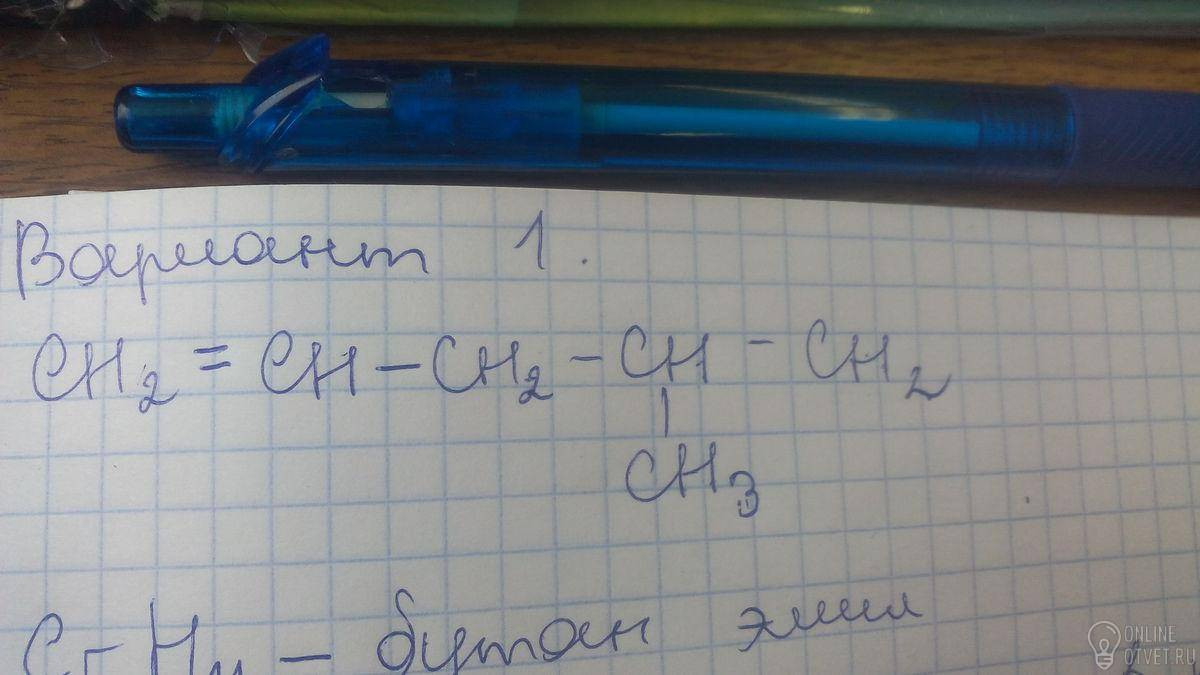 Вариант 1.
CH2 = CH – CH2 – CH – CH2
CH3
– бутан
ONLINE
OTVET.RU